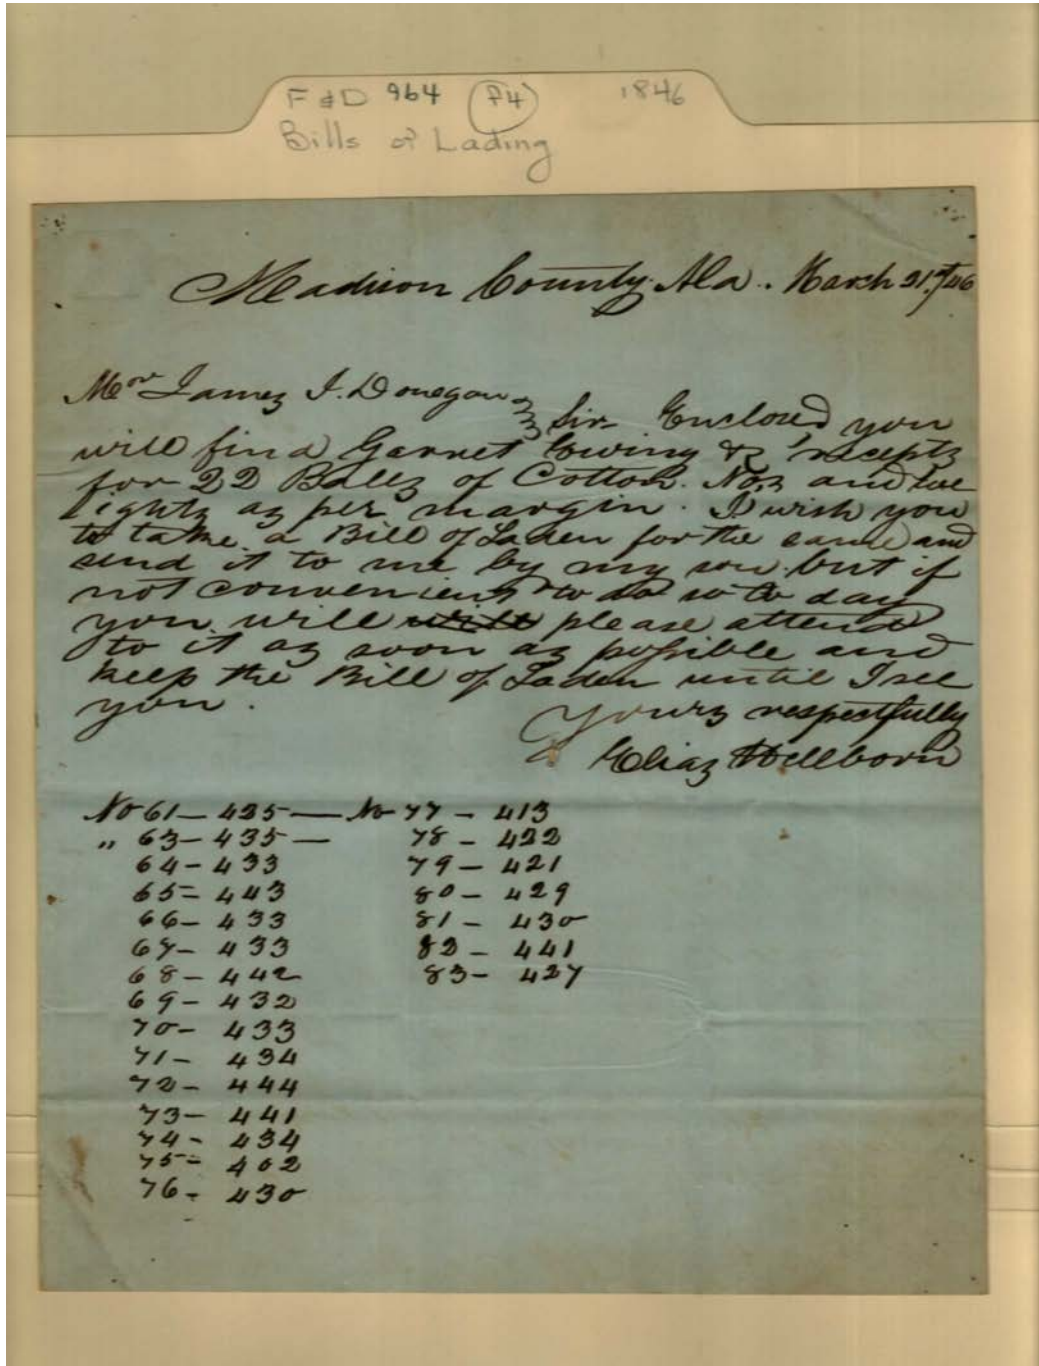 F & D 964 P4 1846
Bills of Lading
Madison County Ala. March 21st/46
James J. Donegan Sir Enclosed you
will find Garret Ewing & receipts
for 22 Balls of Cotton. Nos and we
ights as per margin. I wish you
to take a Bill of Laden for the same and
send it to me by my son but if
not convenient to do so to day
you will will please attend
to it as soon as possible and
keep the Bill of Laden until I see
you.
Yours respectfully
Elias Wellborn
No 61 — 425 — No 77 — 413
" 63 — 435 — 78 — 422
64 — 433 79 — 421
65 = 443 80 — 429
66 — 433 81 — 430
67 — 433 82 — 441
68 — 442 83 — 427
69 — 432
70 — 433
71 — 434
72 — 444
73 — 441
74 - 434
75 = 402
76 - 430